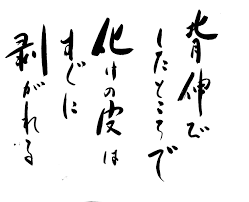 背伸び
したところで
化けの皮は
すぐに
剥がれる